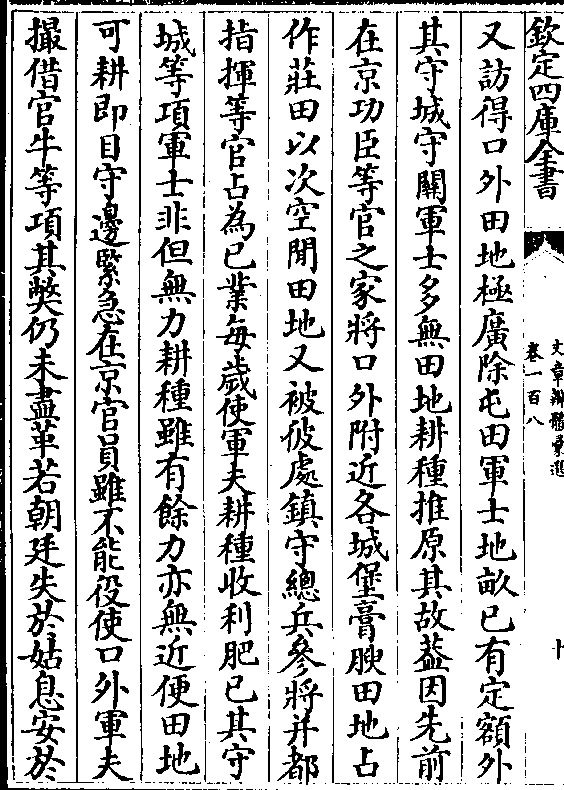 欽定四庫全書
文章辨體彙選
卷一百八
十
又訪得口外田地極廣除屯田軍士地畝已有定額外
其守城守關軍士多無田地耕種推原其故葢因先前
在京功臣等官之家將口外附近各城堡膏腴田地占
作莊田以次空閒田地又被彼處鎮守總兵參將并都
指揮等官占為已業每歲使軍夫耕種收利肥已其守
城等項軍士非但無力耕種雖有餘力亦無近便田地
可耕即目守邊緊急在京官員雖不能役使口外軍夫
撮借官牛等項其弊仍未盡革若朝廷失於姑息安於